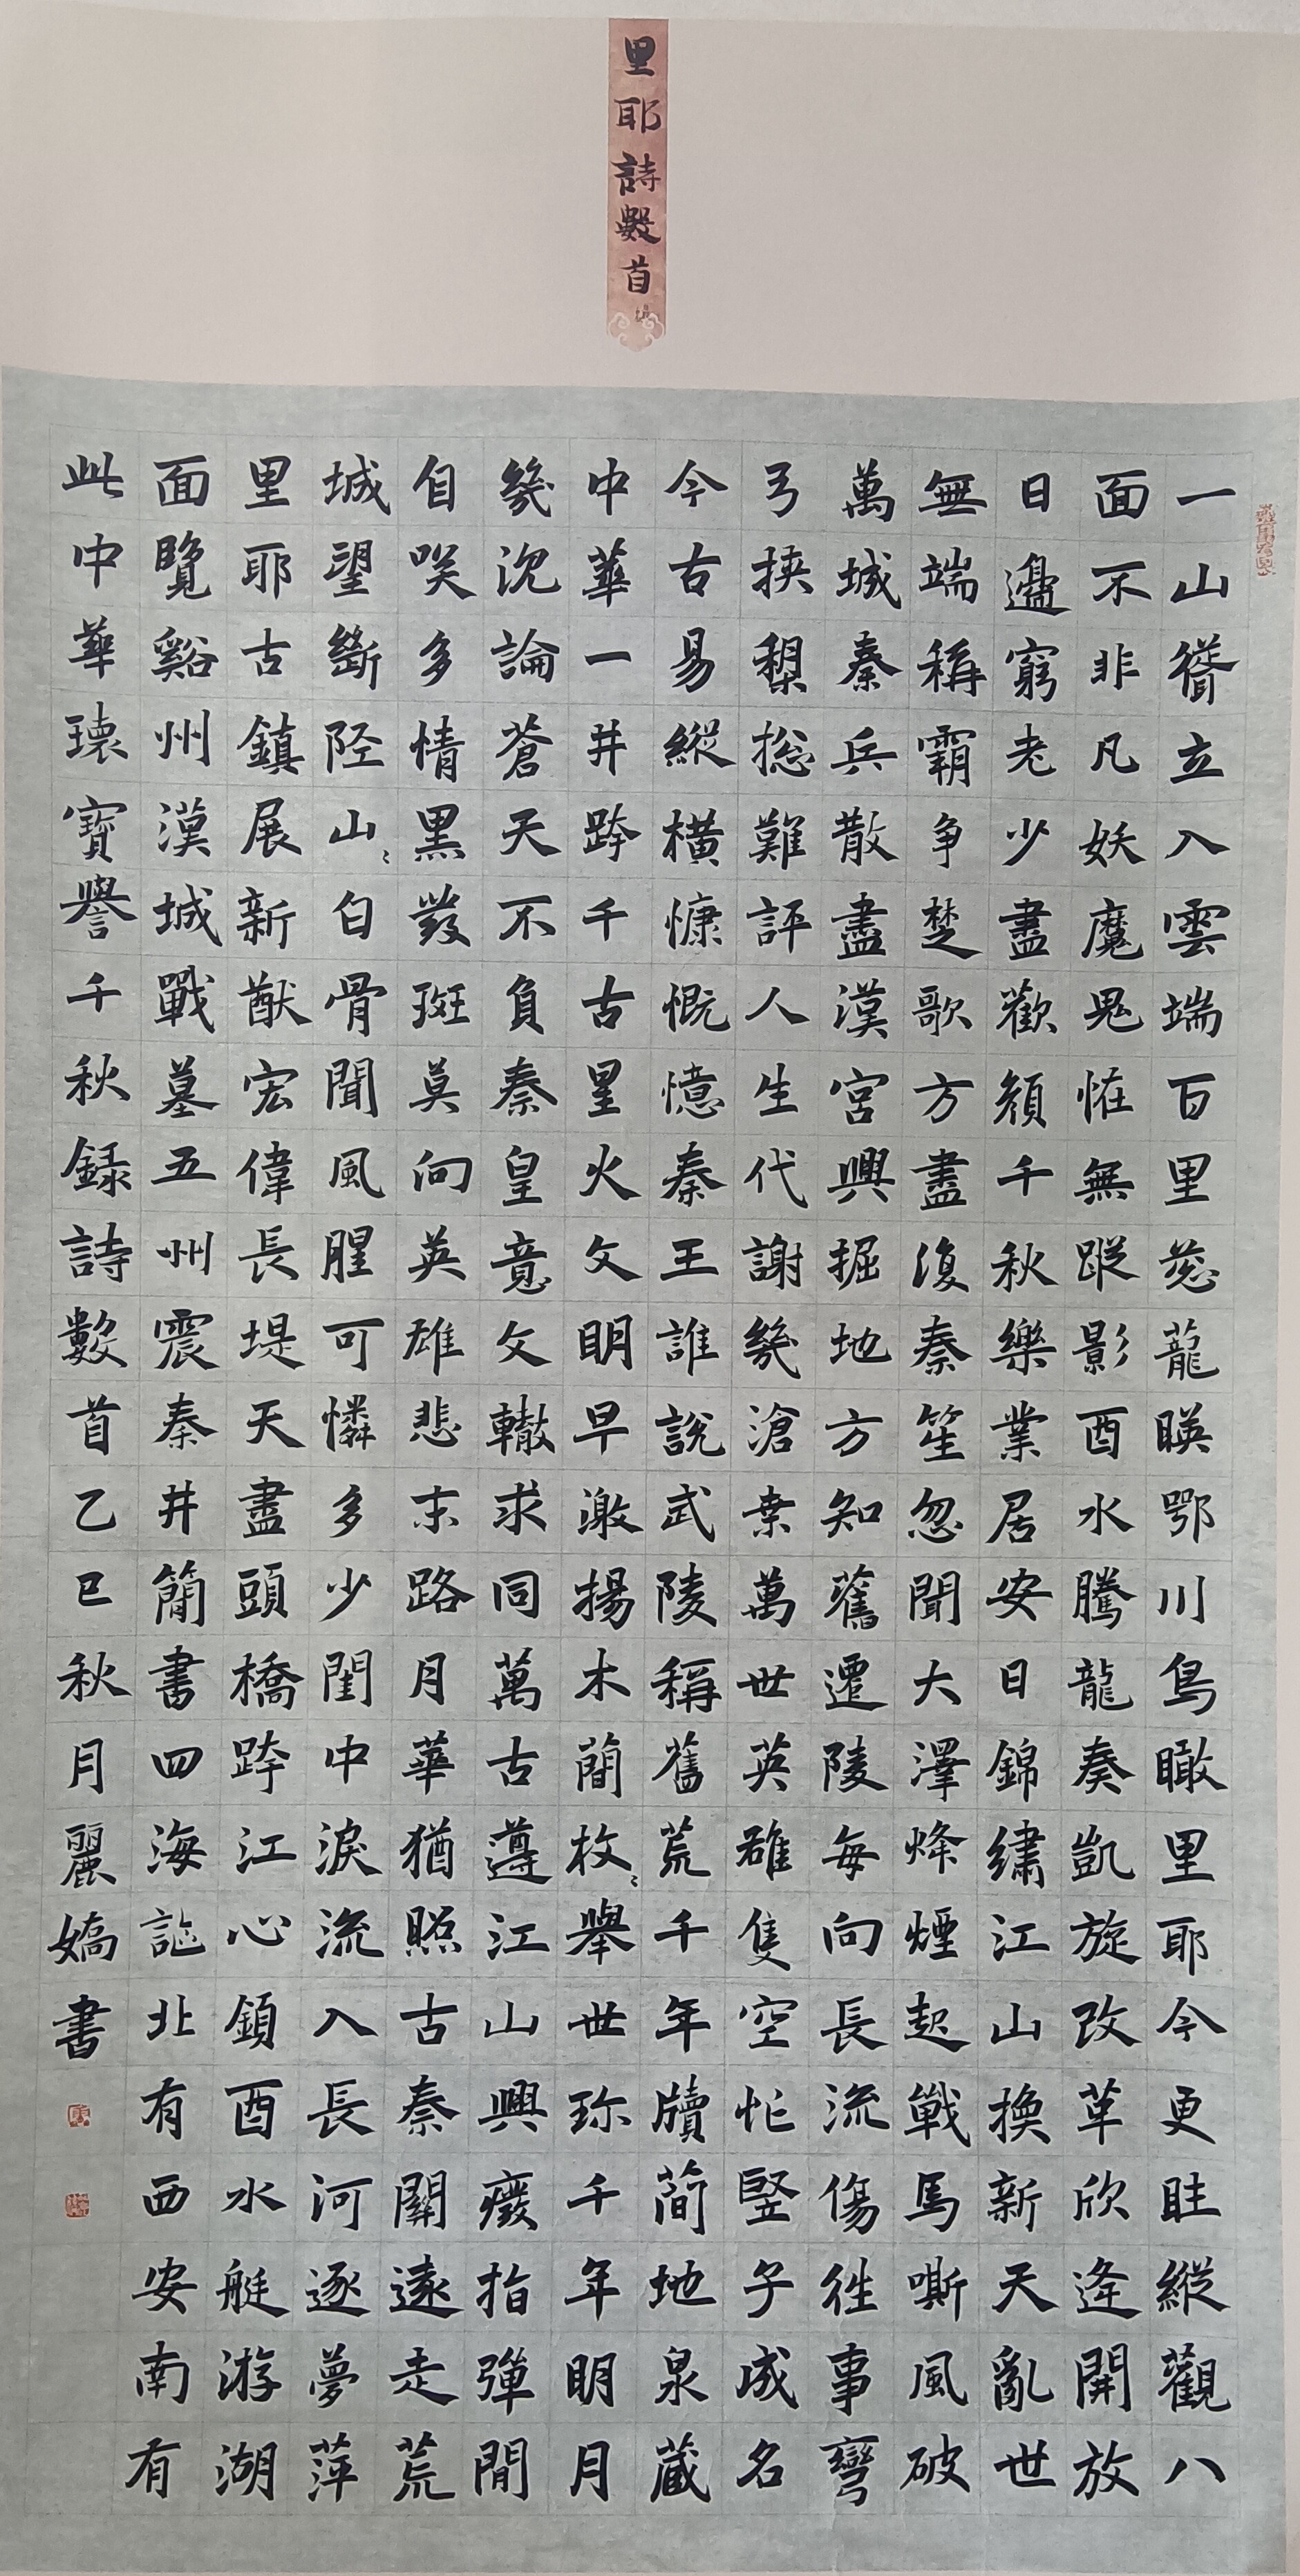 里耶詩數首
一山聳立入雲端百里蒼龍暎鄂川鳥瞰里耶今更眭縱觀八
面不非凡妖魔鬼恠無蹤影酉水騰龍奏凱旋改革欣逢開放
日邊窮老少盡歡顏千秋樂業居安日錦繡江山換新天亂世
無端稱霸爭楚歌方盡復秦笙忽聞大澤烽煙起戰馬嘶風破
萬城秦兵散盡漢宮興掘地方知舊遷陵每向長流傷往事彎
弓挾槊總難評人生代謝幾滄桒萬世英雄隻空忙豎子成名
今古易縱橫慷慨憶秦王誰說武陵稱舊荒千年牘簡地泉藏
中華一井跨千古星火文明早激揚木簡枚〻舉世珍千年明月
幾沉論蒼天不負秦皇意文轍求同萬古遵江山興廢指彈間
自咲多情黑發斑莫向英雄悲末路月華猶照古秦關遠走荒
城望斷陘山〻白骨聞風腥可憐多少閨中淚流入長河逐夢萍
里耶古鎮展新猷宏偉長堤天盡頭橋跨江心鎖酉水艇游湖
面覽谿州漢城戰墓五州震秦井簡書四海謳北有西安南有
此中華瓌寶譽千秋録詩數首乙巳秋月麗嬌書